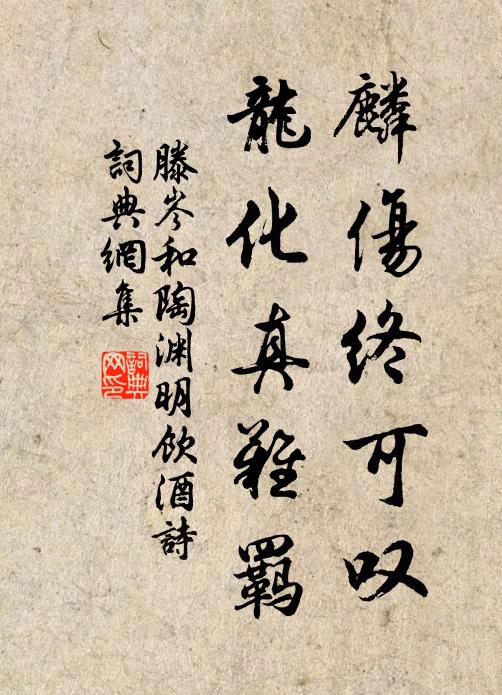 麟傷終可叹
龍化真難羈
滕岑和陶渊明飲酒詩
詞典網集
詞典
网印